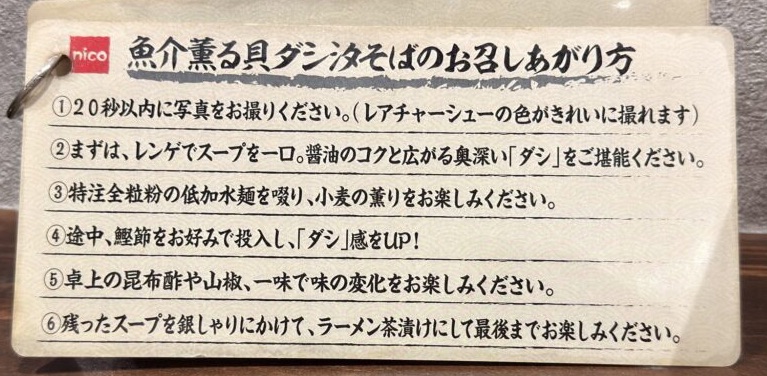 nico
魚介薫る貝ダシ汐そばのお召しあがり方
①20秒以内に写真をお撮りください。(レアチャーシューの色がきれいに撮れます)
②まずは、レンゲでスープを一口。醤油のコクと広がる奥深い「ダシ」をご堪能ください。
③特注全粒粉の低加水麺を啜り、小麦の薫りをお楽しみください。
④途中、鰹節をお好みで投入し、「ダシ」感をUP!
⑤卓上の昆布酢や山椒、一味で味の変化をお楽しみください。
⑥残ったスープを銀しゃりにかけて、ラーメン茶漬けにして最後までお楽しみください。